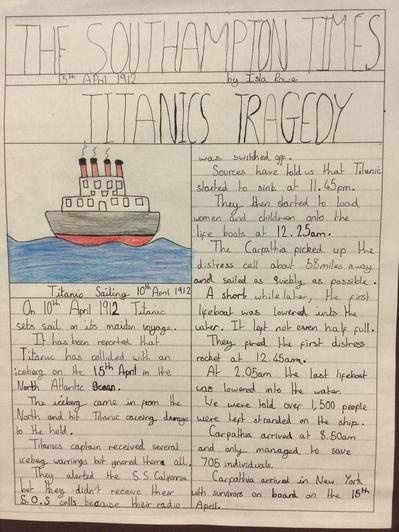 THE SOUTHAMPTON TIMES
15th April 1912 by Isla Rowe
TITANICS TRAGEDY
Titanic Sailing 10th April 1912
On 10th April 1912 Titanic
sets sail on its maiden voyage.
It has been reported that
Titanic has collided with an
iceberg on the 15th April in the
North Atlantic Ocean.
The iceberg came in from the
North and hit Titanic causing damage
to the hold.
Titanics captain received several
iceberg warnings but ignored them all.
They alerted the S.S. California
but they didn't receive their
S.O.S calls because their radio
was switched off.
Sources have told us that Titanic
started to sink at 11.45pm.
They then started to load
women and children onto the
life boats at 12.25am.
The Carpathia picked up the
distress call about 58 miles away
and sailed as quickly as possible.
A short while later, the first
lifeboat was lowered into the
water. It left not even half full.
They fired the first distress
rocket at 12.45am.
At 2.05am the last lifeboat
was lowered into the water.
We were told over 1,500 people
were left stranded on the ship.
Carpathia arrived at 8.50am
and only managed to save
705 individuals.
Carpathia arrived in New York
with survivors on board on the 15th
April.